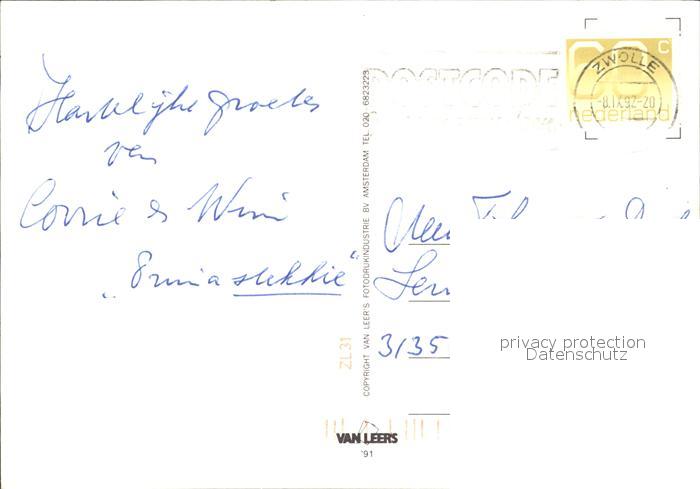 Hartelijke groeten
van
Corrie en Wim
"Ermia stekkie"
COPYRIGHT VAN LEER'S FOTODRUKINDUSTRIE BV AMSTERDAM TEL. 020 6823223
ZL 31
VAN LEERS
'91
POSTCODE
60 c
nederland
ZWOLLE
-8.IX.92-20
3135
privacy protection
Datenschutz